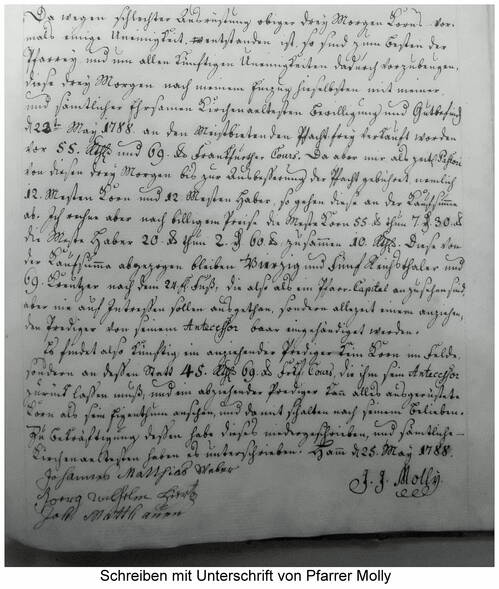 Da wegen schlechter Ausrüstung obiger drey Morgen Korn vor-
mals einige Uneinigkeit entstanden ist, so sind zum besten der
Pfarrey und um allen künftigen Uneinigkeiten dadurch vorzubeugen,
diese drey Morgen nach meinem Einzug hieselbsten mit meiner
und sämtlicher Ehrsamen Kirchenaeltesten Bewilligung und Gutbefind
d 22ten May 1788. an den Meistbietenden Pfacht frey verkauft worden
vor 55. Rthlr und 69. Frankfurther Cours. Da aber mir als zeitl. Pastori
von diesen drey Morgen bis zur Ausbesserung der Pfacht gebühret nemlich
12. Mesten Korn und 12 Mesten Haber, so gehen diese an der Kaufsumma
ab. Ich rechne aber nach billigem Preise die Meste Korn 55 thun 7. 30.
die Meste Haber 20. thun 2. 60. zusammen 10 Rthlr. Diese von
der Kaufsumma abgezogen bleiben Vierzig und Fünf Reichsthaler und
69. Kreutzer nach dem 24. fl Fuß, die also als ein Pfarr-Capital anzusehen sind,
aber nie auf Interessen sollen ausgethan, sondern allezeit einem anziehen-
den Prediger von seinem Antecessor baar eingehändiget werden.
Es findet also künftig ein anziehender Prediger kein Korn im Felde,
sondern an dessen statt 45. Rthlr 69. Frkf Cours, die ihm sein Antecessor
zurück lassen muß, und ein abziehender Prediger kan alles ausgerüstete
Korn als sein Eigenthum ansehen, und damit schalten nach seinem belieben.
Zu Bekräftigung dessen habe dieses niedergeschrieben, und sämtliche
Kirchenaeltesten haben es unterschrieben. Hamm d 25. May 1788.
Johannes Matthias Weber
J. J. Molly
Georg Wilhelm
Joh Matth
Schreiben mit Unterschrift von Pfarrer Molly